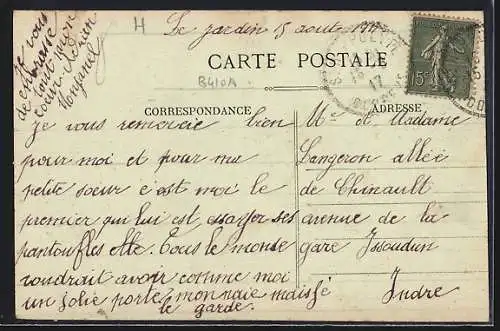 Le Jardin 15 aout 1917
H
Je vous
embrasse
de tout mon
coeur Adrien
CARTE POSTALE
B410A
15c
CORRESPONDANCE
ADRESSE
Je vous remercie bien
pour moi et pour ma
petite soeur c est moi le
premier qui lui est essayer ses
pantoufles elle. Tous le monde
voudrait avoir comme moi
un jolie porte monnaie mais je
le garde.
Mr et Madame
Langeron allée
de Chinault
avenue de la
gare Issoudun
Indre